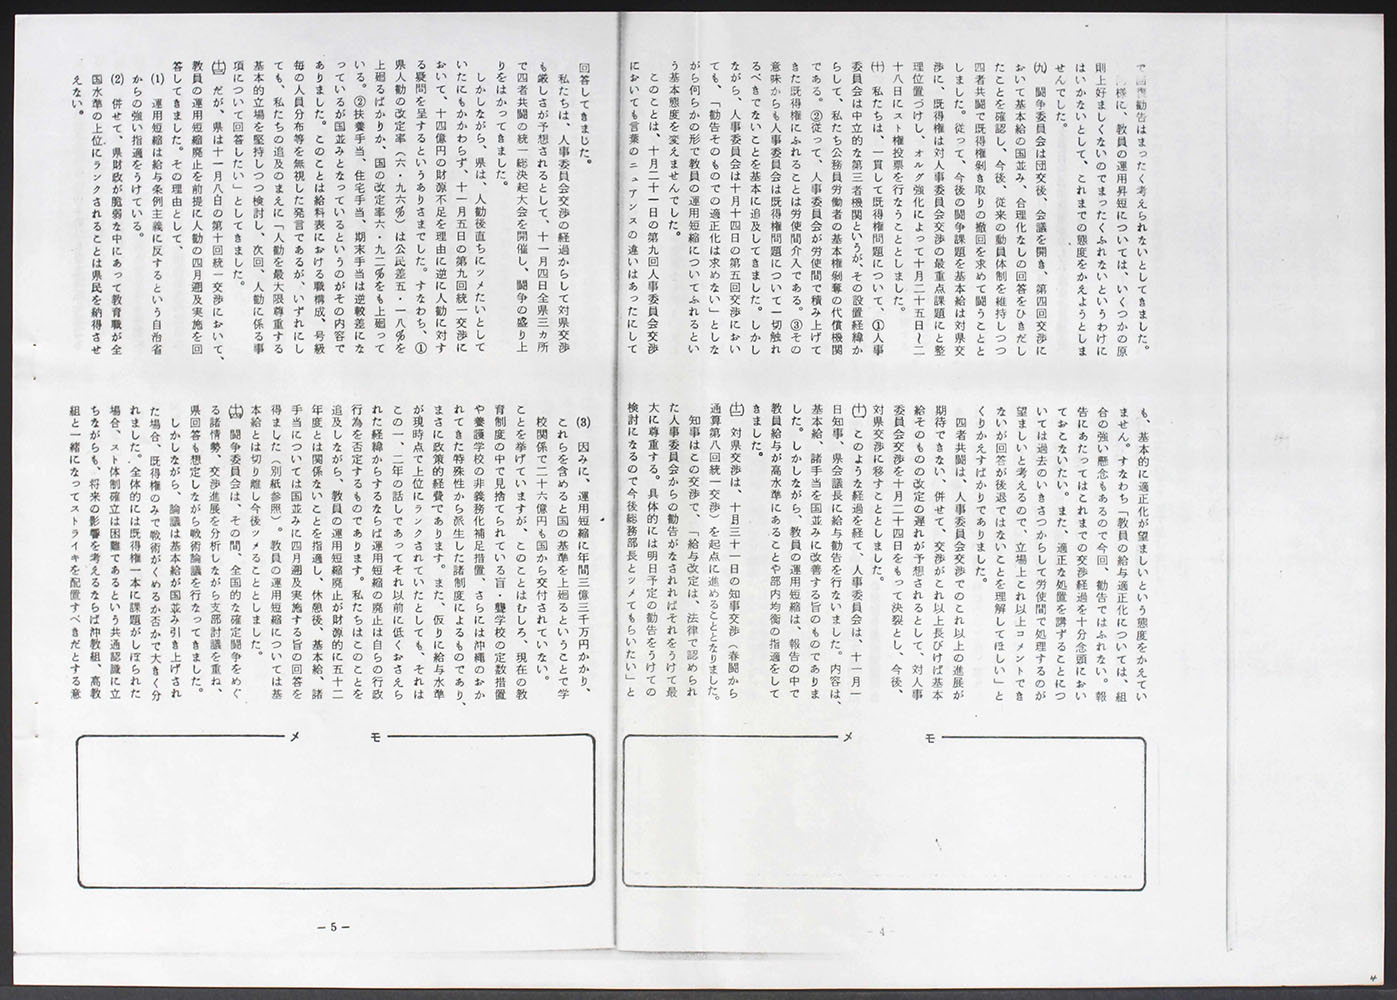 で回避勧告はまったく考えられないとしてきました。
様に、教員の運用昇短については、いくつかの原
則上好ましくないのでまったくふれないというわけに
はいかないとして、これまでの態度をかえようとしま
せんでした。
㈨ 闘争委員会は団交後、会議を開き、第四回交渉に
おいて基本給の国並み、合理化なしの回答をひきだし
たことを確認し、今後、従来の動員体制を維持しつつ
四者共闘で既得権剥ぎ取りの撤回を求めて闘うことと
しました。従って、今後の闘争課題を基本給は対県交
渉に、既得権は対人事委員会交渉の最重点課題にと整
理位置づけし、オルグ強化によって十月二十五日～二
十八日にスト権投票を行なうこととしました。
㈩ 私たちは、一貫して既得権問題について、①人事
委員会は中立的な第三者機関というが、その設置経緯か
らして、私たち公務員労働者の基本権剥奪の代償機関
である。②従って、人事委員会が労使間で積み上げて
きた既得権にふれることは労使間介入である。③その
意味からも人事委員会は既得権問題について一切触れ
るべきでないことを基本に追及してきました。しかし
ながら、人事委員会は十月十四日の第五回交渉におい
ても、「勧告そのものでの適正化は求めない」としな
がら何らかの形で教員の運用短縮についてふれるとい
う基本態度を変えませんでした。
このことは、十月二十一日の第九回人事委員会交渉
においても言葉のニュアンスの違いはあったにして
も、基本的に適正化が望ましいという態度をかえてい
ません。すなわち「教員の給与適正化については、組
合の強い懸念もあるので今回、勧告ではふれない。報
告にあたってはこれまでの交渉経過を十分念頭におい
ておこないたい。また、適正な処置を講ずることにつ
いては過去のいきさつからして労使間で処理するのが
望ましいと考えるので、立場上これ以上コメントでき
ないが回答が後退ではないことを理解してほしい」と
くりかえすばかりでありました。
四者共闘は、人事委員会交渉でのこれ以上の進展が
期待できない、併せて、交渉がこれ以上長びけば基本
給そのものの改定の遅れが予想されるとして、対人事
委員会交渉を十月二十四日をもって決裂とし、今後、
対県交渉に移すこととしました。
(十一) このような経過を経て、人事委員会は、十一月一
日知事、県会議長に給与勧告を行ないました。内容は、
基本給、諸手当を国並みに改善する旨のものでありま
した。しかしながら、教員の運用短縮は、報告の中で
教員給与が高水準にあることや部内均衡の指適をして
きました。
(十二) 対県交渉は、十月三十一日の知事交渉(春闘から
通算第八回統一交渉)を起点に進めることとなりました。
知事はこの交渉で、「給与改定は、法律で認められ
た人事委員会からの勧告がなされればそれをうけて最
大に尊重する。具体的には明日予定の勧告をうけての
検討になるので今後総務部長とツメてもらいたい」と
メモ
— 4 —
回答してきました。
私たちは、人事委員会交渉の経過からして対県交渉
も厳しさが予想されるとして、十一月四日全県三ヵ所
で四者共闘の統一総決起大会を開催し、闘争の盛り上
りをはかってきました。
しかしながら、県は、人勧後直ちにツメたいとして
いたにもかかわらず、十一月五日の第九回統一交渉に
おいて、十四億円の財源不足を理由に逆に人勧に対す
る疑問を呈するというありさまでした。すなわち、①
県人勧の改定率(六・九六%)は公民差五・一八%を
上廻るばかりか、国の改定率六・九二%をも上廻って
いる。②扶養手当、住宅手当、期末手当は逆較差にな
っているが国並みとなっているというのがその内容で
ありました。このことは給料表における職構成、号級
毎の人員分布等を無視した発言であるが、いずれにし
ても、私たちの追及のまえに「人勧を最大限尊重する
基本的立場を堅持しつつ検討し、次回、人勧に係る事
項について回答したい」としてきました。
(十三) だが、県は十一月八日の第十回統一交渉において、
教員の運用短縮廃止を前提に人勧の四月遡及実施を回
答してきました。その理由として、
(1) 運用短縮は給与条例主義に反するという自治省
からの強い指適をうけている。
(2) 併せて、県財政が脆弱な中にあって教育職が全
国水準の上位にランクされることは県民を納得させ
えない。
(3) 因みに、運用短縮に年間三億三千万円かかり、
これらを含めると国の基準を上廻るということで学
校関係で二十六億円も国から交付されていない。
ことを挙げていますが、このことはむしろ、現在の教
育制度の中で見捨てられている盲・聾学校の定数措置
や養護学校の非義務化補足措置、さらには沖縄のおか
れてきた特殊性から派生した諸制度によるものであり、
まさに政策的経費であります。また、仮りに給与水準
が現時点で上位にランクされていたとしても、それは
この一、二年の話しであってそれ以前に低くおさえら
れた経緯からするならば運用短縮の廃止は自らの行政
行為を否定するものであります。私たちはこのことを
追及しながら、教員の運用短縮廃止が財源的に五十二
年度とは関係ないことを指適し、休憩後、基本給、諸
手当については国並みに四月遡及実施する旨の回答を
得ました(別紙参照)。教員の運用短縮については基
本給とは切り離し今後ツメることとしました。
(十四) 闘争委員会は、その間、全国的な確定闘争をめぐ
る諸情勢、交渉進展を分析しながら支部討議を重ね、
県回答も想定しながら戦術論議を行なってきました。
しかしながら、論議は基本給が国並み引き上げされ
た場合、既得権のみで戦術がくめるか否かで大きく分
れました。全体的には既得権一本に課題がしぼられた
場合、スト体制確立は困難であるという共通認識に立
ちながらも、将来の影響を考えるならば沖教組、高教
組と一緒になってストライキを配置すべきだとする意
メモ
— 5 —
4